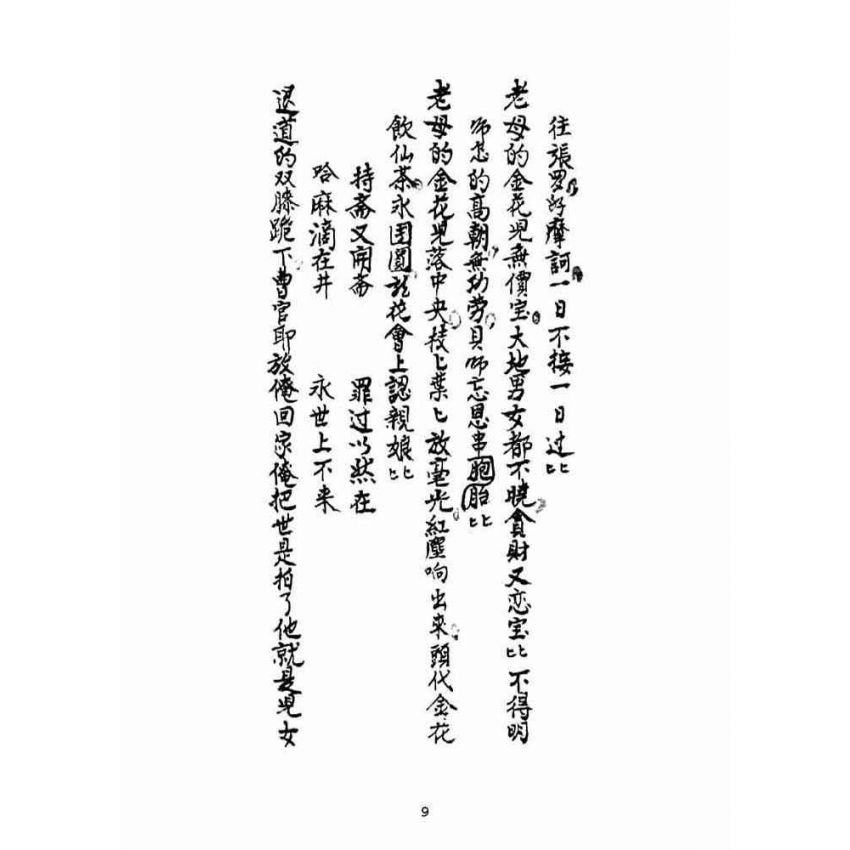 往張罗好摩訶一日不接一日过匕匕
老母的金花児無價宝大地男女都不曉貪財又恋宝匕匕不得明
师怎的高朝無功劳貝师忘恩串胞胎匕匕
老母的金花児落中央枝匕葉匕放毫光紅塵响出來頭代金花
飲仙茶永団圓龙花會上認親娘匕匕
持斋又開斋 罪过以然在
哈麻滴在井 永世上不来
退道的双膝跪下曹官耶放俺回家俺把世是拍了他就是児女
9